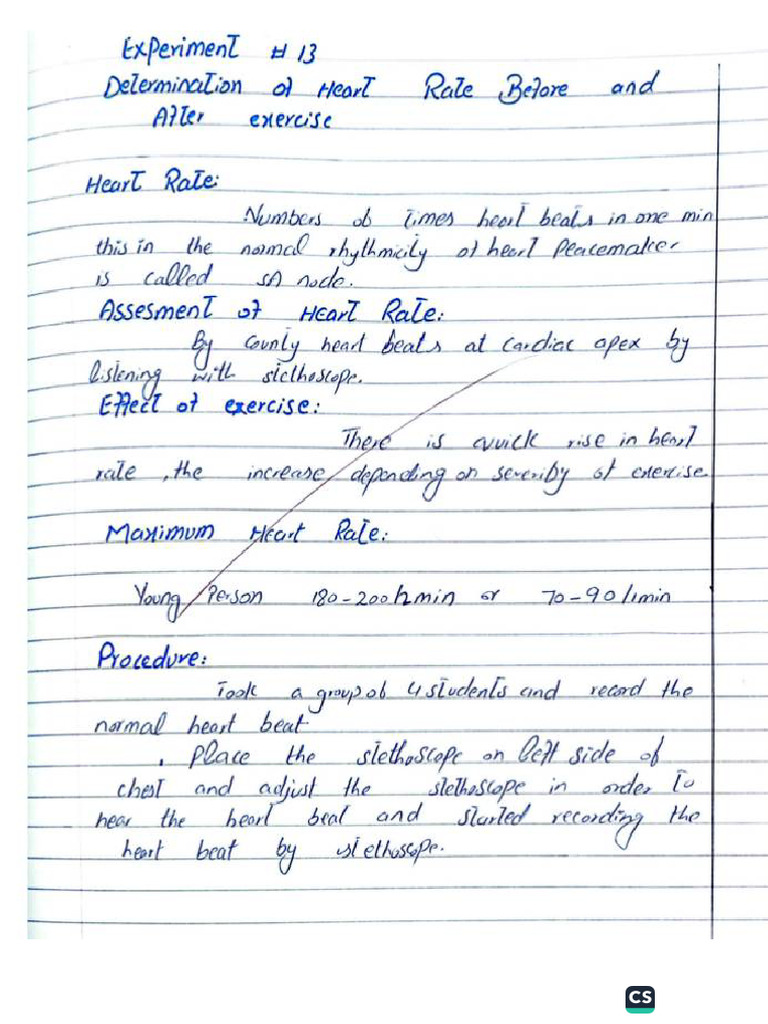 Experiment # 13
Determination of Heart Rate Before and
After exercise
Heart Rate:
Numbers of times heart beats in one min
this in the normal rhythmicity of heart Peacemaker
is called SA node.
Assesment of HEart Rate:
By county heart beats at cardiac apex by
listening with stethoscope.
Effect of exercise:
There is quick rise in heart
rate, the increase depending on severiby of exercise
Maximum Heart Rate:
Young Person 180-200/min or 70-90/min
Procedure:
Took a group of 4 students and record the
normal heart beat
. Place the stethoscope on left side of
chest and adjust the stethoscope in order to
hear the heart beat and started recording the
heart beat by stethoscope.
CS